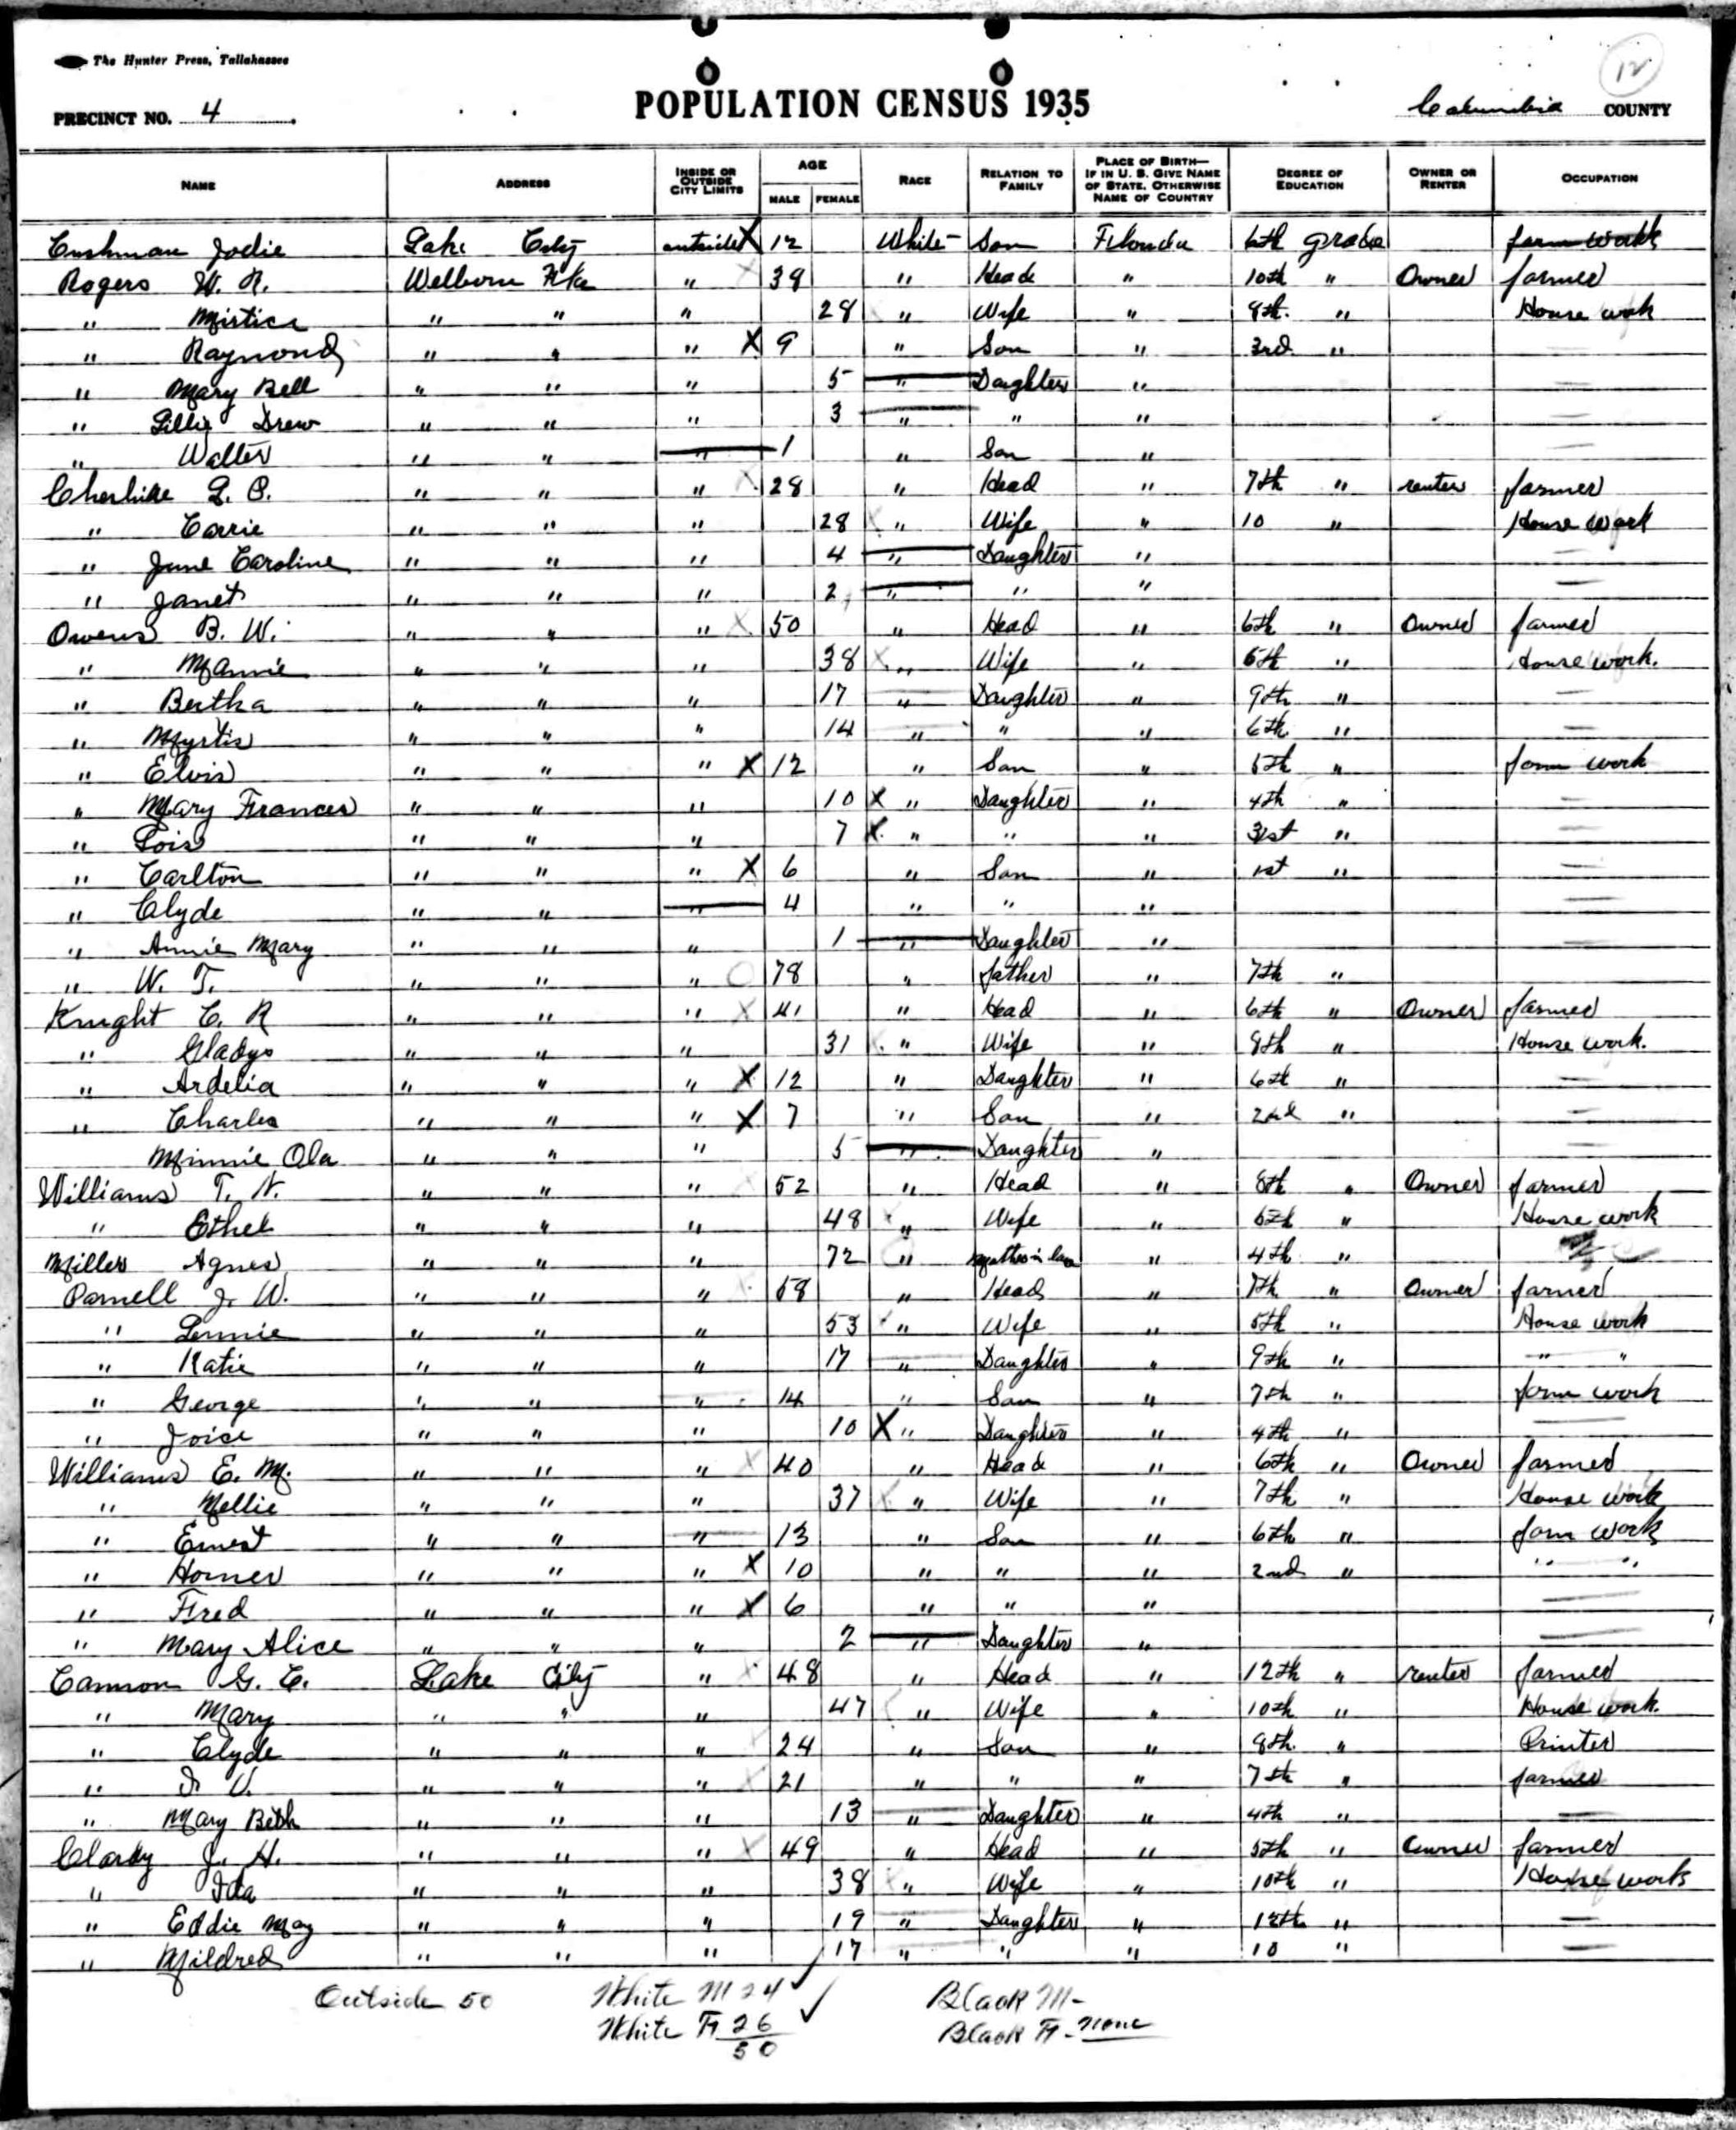 The Hunter Press, Tallahassee
12
PRECINCT NO. 4
POPULATION CENSUS 1935
Columbia COUNTY
NAME ADDRESS INSIDE OR OUTSIDE CITY LIMITS AGE MALE FEMALE RACE RELATION TO FAMILY PLACE OF BIRTH—IF IN U. S. GIVE NAME OF STATE. OTHERWISE NAME OF COUNTRY DEGREE OF EDUCATION OWNER OR RENTER OCCUPATION
Cushman Jodie Lake City outside X 12 White Son Florida 6th grade farm work
Rogers W. R. Welborn " X 38 " Head " 10th " Owner farmer
" Mistica " " " 28 " Wife " 8th. " House work
" Raymond " " " X 9 " Son " 3rd "
" Mary Bell " " " 5 " Daughter "
" Lillie Drew " " " 3 " " "
" Walter " " " 1 " Son "
L. C. " " " X 28 " Head " 7th " renter farmer
" Carrie " " " 28 X " Wife " 10 " House work
" June Caroline " " " 4 " Daughter "
" Janet " " " 2 " " "
Owens B. W. " " " X 50 " Head " 6th " Owner farmer
" Mannie " " " 38 X " Wife " 5th " House work.
" Bertha " " " 17 " Daughter " 9th "
" Myrtis " " " 14 " " " 6th "
" Elvis " " " X 12 " Son " 5th " farm work
" Mary Frances " " " 10 X " Daughter " 4th "
" Lois " " " 7 X " " " "
" Carlton " " " X 6 " Son " 1st "
" Clyde " " " 4 " " "
" Annie Mary " " " 1 " Daughter "
" W. T. " " " 78 " father " 7th "
Knight C. R " " " X 41 " Head " 6th " Owner farmer
" Gladys " " " 31 X " Wife " 8th " House work.
" Ardelia " " " X 12 " Daughter " 6th "
" Charles " " " X 7 " Son " 2nd "
Minnie Ola " " " 5 " Daughter "
Williams T. N. " " " 52 " Head " 8th " Owner farmer
" Ethel " " " 48 X " Wife " 5th " House work
Miller Agnes " " " 72 " Mother in law " 4th "
Parnell J. W. " " " 58 " Head " 7th " Owner farmer
" Lennie " " " 53 " Wife " 5th " House work
" Katie " " " 17 " Daughter " 9th " " "
" George " " " 14 " Son " 7th " farm work
" Joice " " " 10 X " Daughter " 4th "
Williams E. M. " " " X 40 " Head " 6th " Owner farmer
" Mellie " " " 37 X " Wife " 7th " House work
" Ernest " " " 13 " Son " 6th " farm work
" Homer " " " X 10 " " " 2nd " " "
" Fred " " " X 6 " " "
" Mary Alice " " " 2 " Daughter "
Cannon G. C. Lake City " X 48 " Head " 12th " renter farmer
" Mary " " " 47 " Wife " 10th " House work.
" Clyde " " " 24 " Son " 8th. " Printer
" " " " X 21 " " " 7th " farmer
" Mary Beth " " " 13 " Daughter " 4th "
Clardy J. H. " " " X 49 " Head " 5th " Owner farmer
" Ida " " " 38 X " Wife " 10th " House work
" Eddie May " " " 19 " Daughter " 12th "
" Mildred " " " 17 " " " 10 "
Outside 50 White M 24 ✓ Black M-
White F 26 ✓ Black F- none
50